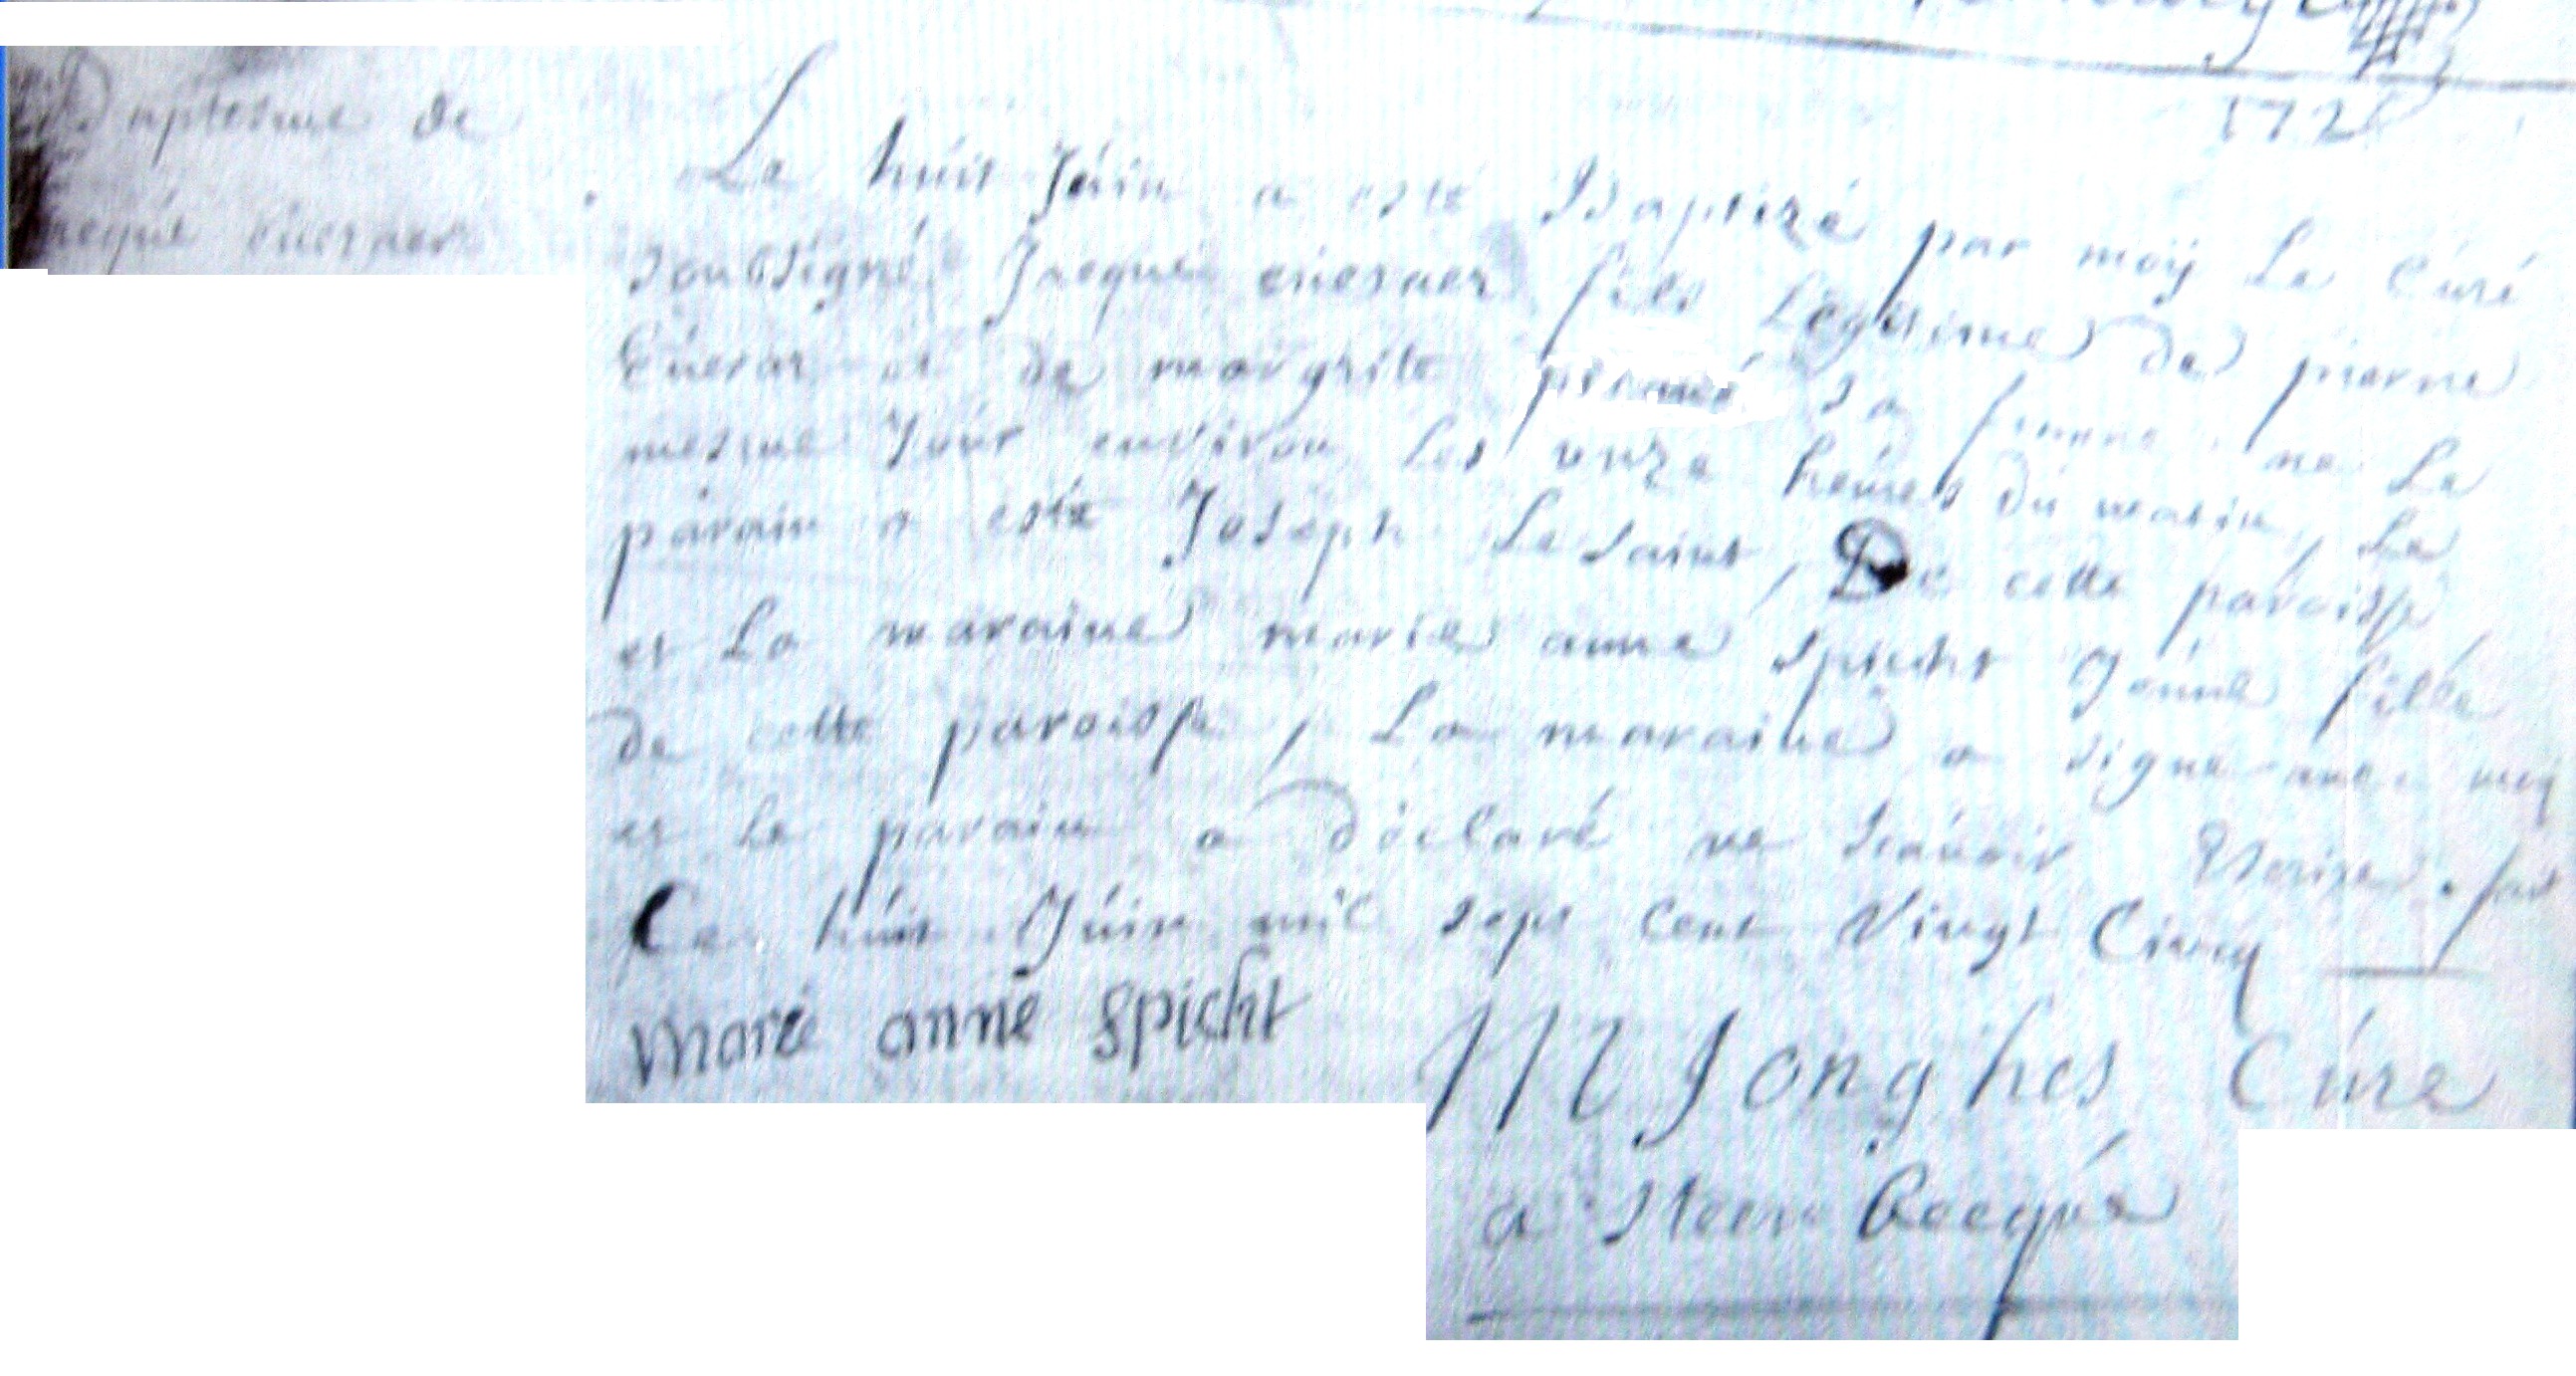 Baptesme de
Le huit Juin a esté Baptizé par moÿ Le Curé
soussigné Jnequé everaer fils Legitime de pierre
Everar et de margrite sa femme né Le
mesme Jour environ Les unze heures du matin, Le
parain a esté Joseph Le saint, De cette paroisse
et La maraine marie anne spicht Jeune fille
de cette paroisse, La maraine a signé avec moy
et Le parain a déclaré ne scavoir Escrire. fait
Ce huit Juin mil sept Cent Vingt Cincq
Marie anne Spicht
Jonghes Curé
a Steenbecqué